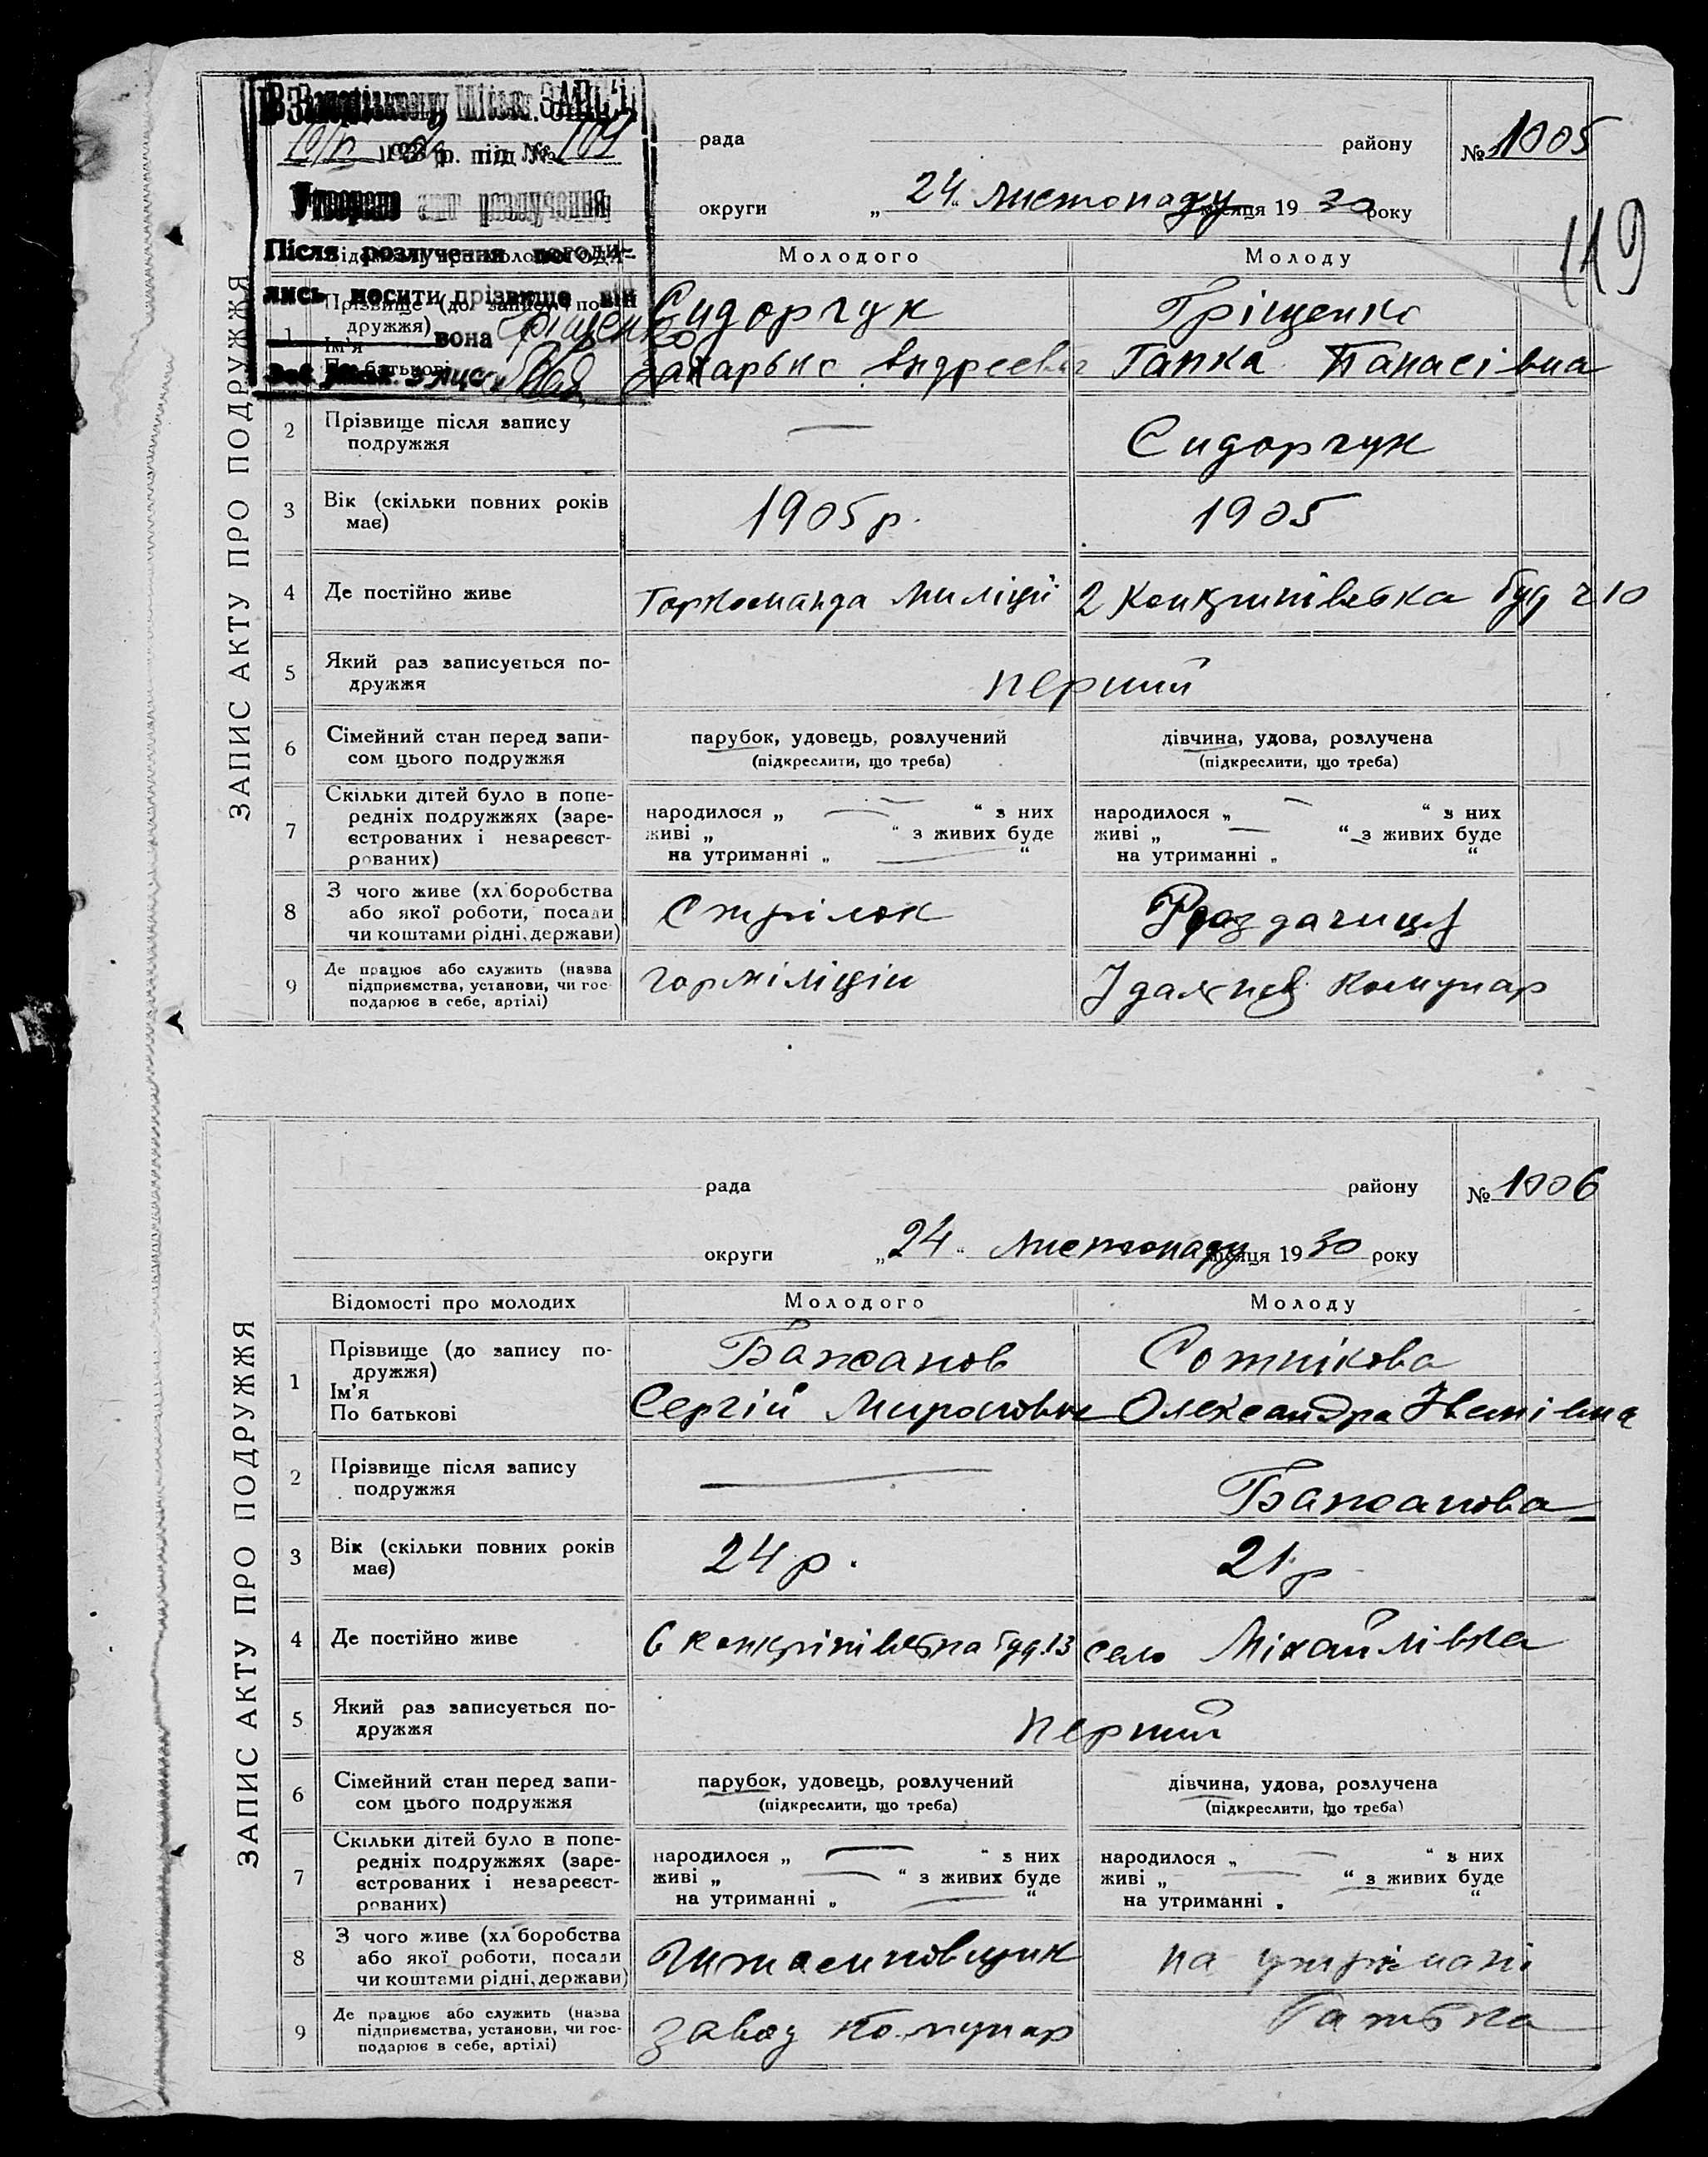 В Запорізькому Міськ. ЗАГС'і
р. під № 109
Утворено акт розлучення
Після розлучення погоди-
лись носити прізвище він
вона Гріщенко
рада району № 1005
округи „ 24 “ листопаду місяця 19 30 року
119
ЗАПИС АКТУ ПРО ПОДРУЖЖЯ
Молодого Молоду
1 Прізвище (до запису по-
дружжя) Сидорчук Гріщенко
Ім’я
По батькові Захарько Андреевич Гапка Панасівна
2 Прізвище після запису
подружжя — Сидорчук
3 Вік (скільки повних років
має) 1905 р. 1905
4 Де постійно живе Горкоманда Міліції 2 буд ч 10
5 Який раз записується по-
дружжя перший
6 Сімейний стан перед запи-
сом цього подружжя парубок, удовець, розлучений дівчина, удова, розлучена
(підкреслити, що треба) (підкреслити, що треба)
7 Скільки дітей було в попе-
редніх подружжях (заре-
єстрованих і незареєст-
рованих) народилося „ — “ з них народилося „ — “ з них
живі „ — “ з живих буде живі „ — “ з живих буде
на утриманні „ — “ на утриманні „ “
8 З чого живе (хліборобства
або якої роботи, посади
чи коштами рідні, держави) Стрілок Роздачиця
9 Де працює або служить (назва
підприємства, установи, чи гос-
подарює в себе, артілі) горміліціи Їдальня Комунар
рада району № 1006
округи „ 24 “ листопаду місяця 19 30 року
ЗАПИС АКТУ ПРО ПОДРУЖЖЯ
Відомості про молодих Молодого Молоду
1 Прізвище (до запису по-
дружжя) Бажанов Сотнікова
Ім’я
По батькові Сергій Миронович Олександра
2 Прізвище після запису
подружжя — Бажанова
3 Вік (скільки повних років
має) 24 р. 21 р
4 Де постійно живе 6 буд. 13 село Міхайлівка
5 Який раз записується по-
дружжя перший
6 Сімейний стан перед запи-
сом цього подружжя парубок, удовець, розлучений дівчина, удова, розлучена
(підкреслити, що треба) (підкреслити, що треба)
7 Скільки дітей було в попе-
редніх подружжях (заре-
єстрованих і незареєст-
рованих) народилося „ — “ з них народилося „ — “ з них
живі „ — “ з живих буде живі „ — “ з живих буде
на утриманні „ — “ на утриманні „ “
8 З чого живе (хліборобства
або якої роботи, посади
чи коштами рідні, держави) на утрімані
9 Де працює або служить (назва
підприємства, установи, чи гос-
подарює в себе, артілі) завод Комунар батька